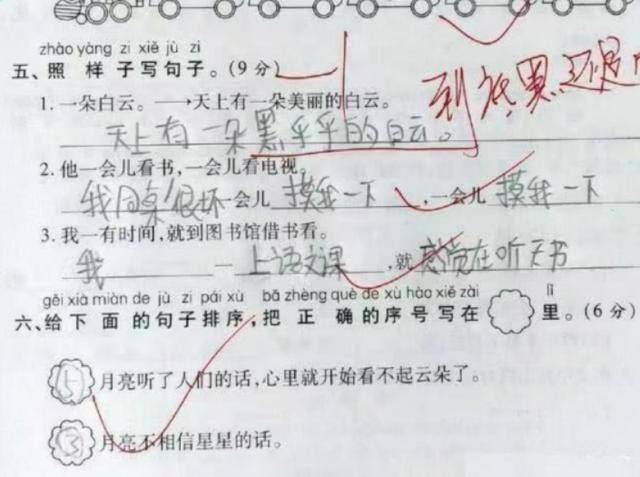 zhào yàng zi xiě jù zi
五、照 样 子写句子。(9分)
1. 一朵白云。⟶天上有一朵美丽的白云。
到底黑还是
天上有一朵黑乎乎的白云。
2. 他一会儿看书,一会儿看电视。
我同桌很坏一会儿 摸我一下 ,一会儿 摸我一下
3. 我一有时间,就到图书馆借书看。
我 一 上语文课 ,就 感觉在听天书
gěi xià miàn de jù zi pái xù bǎ zhèng què de xù hào xiě zài lǐ
六、给 下 面 的句子排序,把 正 确的序号 写在 里。(6分)
月亮听了人们的话,心里就开始看不起云朵了。
3 月亮不相信星星的话。